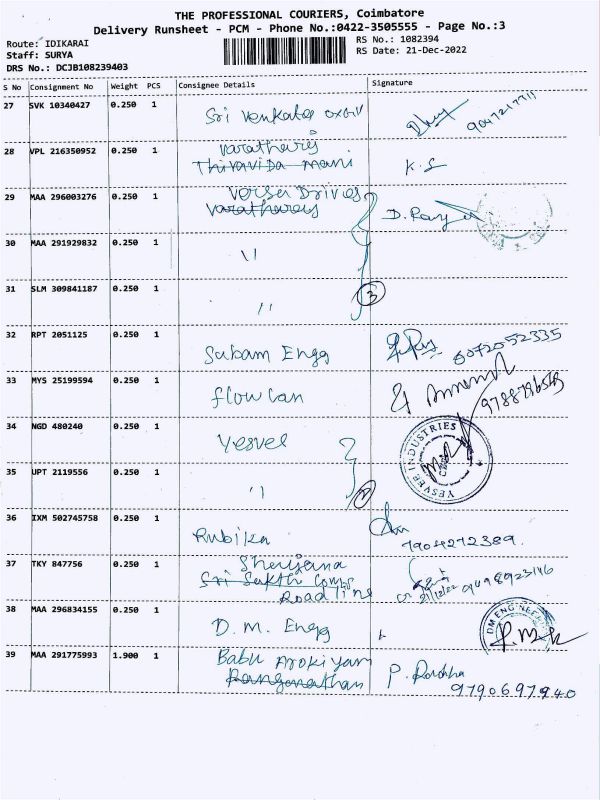 THE PROFESSIONAL COURIERS, Coimbatore
Delivery Runsheet - PCM - Phone No.:0422-3505555 - Page No.:3
Route: IDIKARAI
Staff: SURYA
DRS No.: DCJB108239403
RS No.: 1082394
RS Date: 21-Dec-2022
S No Consignment No Weight PCS Consignee Details Signature
27 SVK 10340427 0.250 1 Sri Venkates
28 VPL 216350952 0.250 1 Varatharis K.S
Thiravida mani
29 MAA 296003276 0.250 1 Versa Drives
D.
30 MAA 291929832 0.250 1 "
31 SLM 309841187 0.250 1 " 3
32 RPT 2051125 0.250 1 Subam Engg 6072052335
33 MYS 25199594 0.250 1 flow can
34 NGD 480240 0.250 1 Yesvel YESVEE INDUSTRIES
35 UPT 2119556 0.250 1 "
36 IXM 502745758 0.250 1 Rubika 7904272389
37 TKY 847756 0.250 1
Sri Sakthi Comps
Roadline
38 MAA 296834155 0.250 1 D.M. Engg
39 MAA 291775993 1.900 1 Babu Arokiyam P.
Ranganathan 9790697940